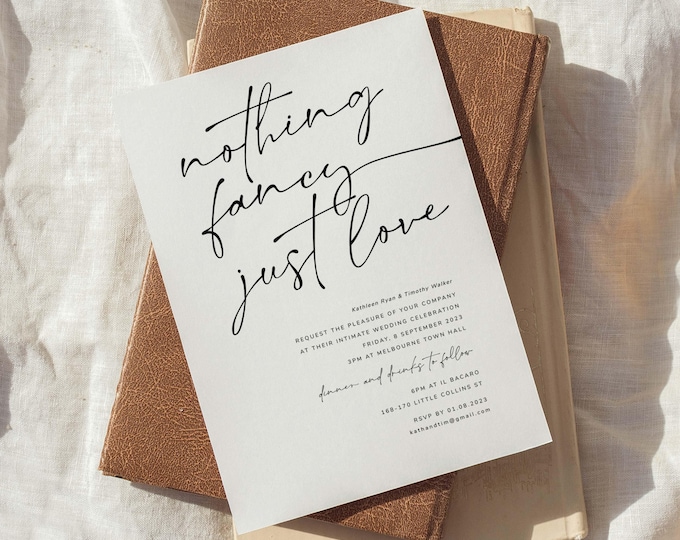 nothing
fancy
just love
Kathleen Ryan & Timothy Walker
REQUEST THE PLEASURE OF YOUR COMPANY
AT THEIR INTIMATE WEDDING CELEBRATION
FRIDAY, 8 SEPTEMBER 2023
3PM AT MELBOURNE TOWN HALL
dinner and drinks to follow
6PM AT IL BACARO
168-170 LITTLE COLLINS ST
RSVP BY 01.08.2023
kathandtim@gmail.com